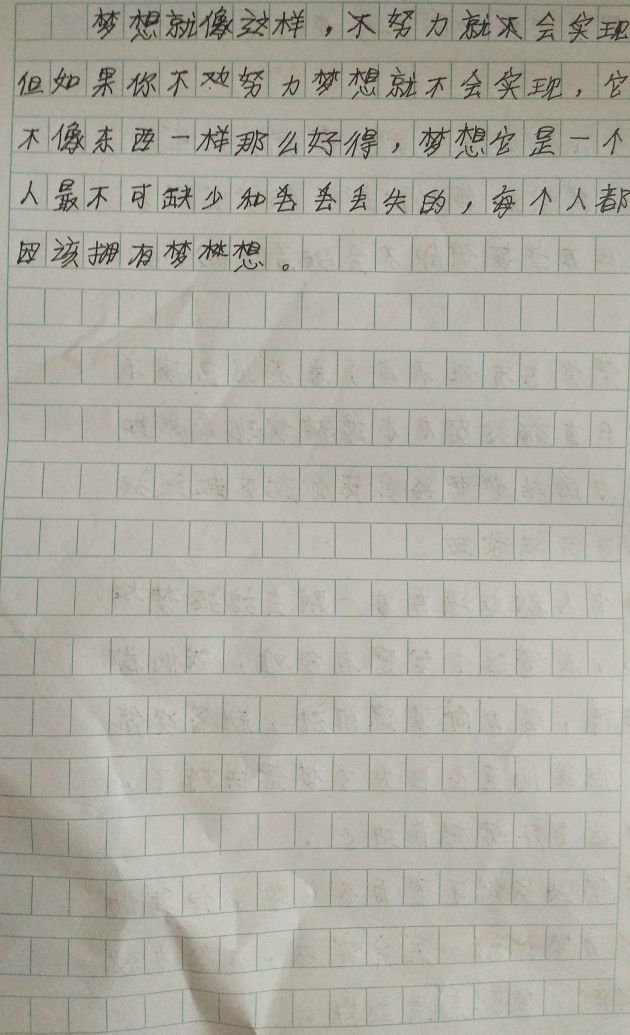 梦想就像这样，不努力就不会实现
但如果你不努力梦想就不会实现，它
不像东西一样那么好得，梦想它是一个
人最不可缺少和丢丢丢失的，每个人都
因该拥有梦想。